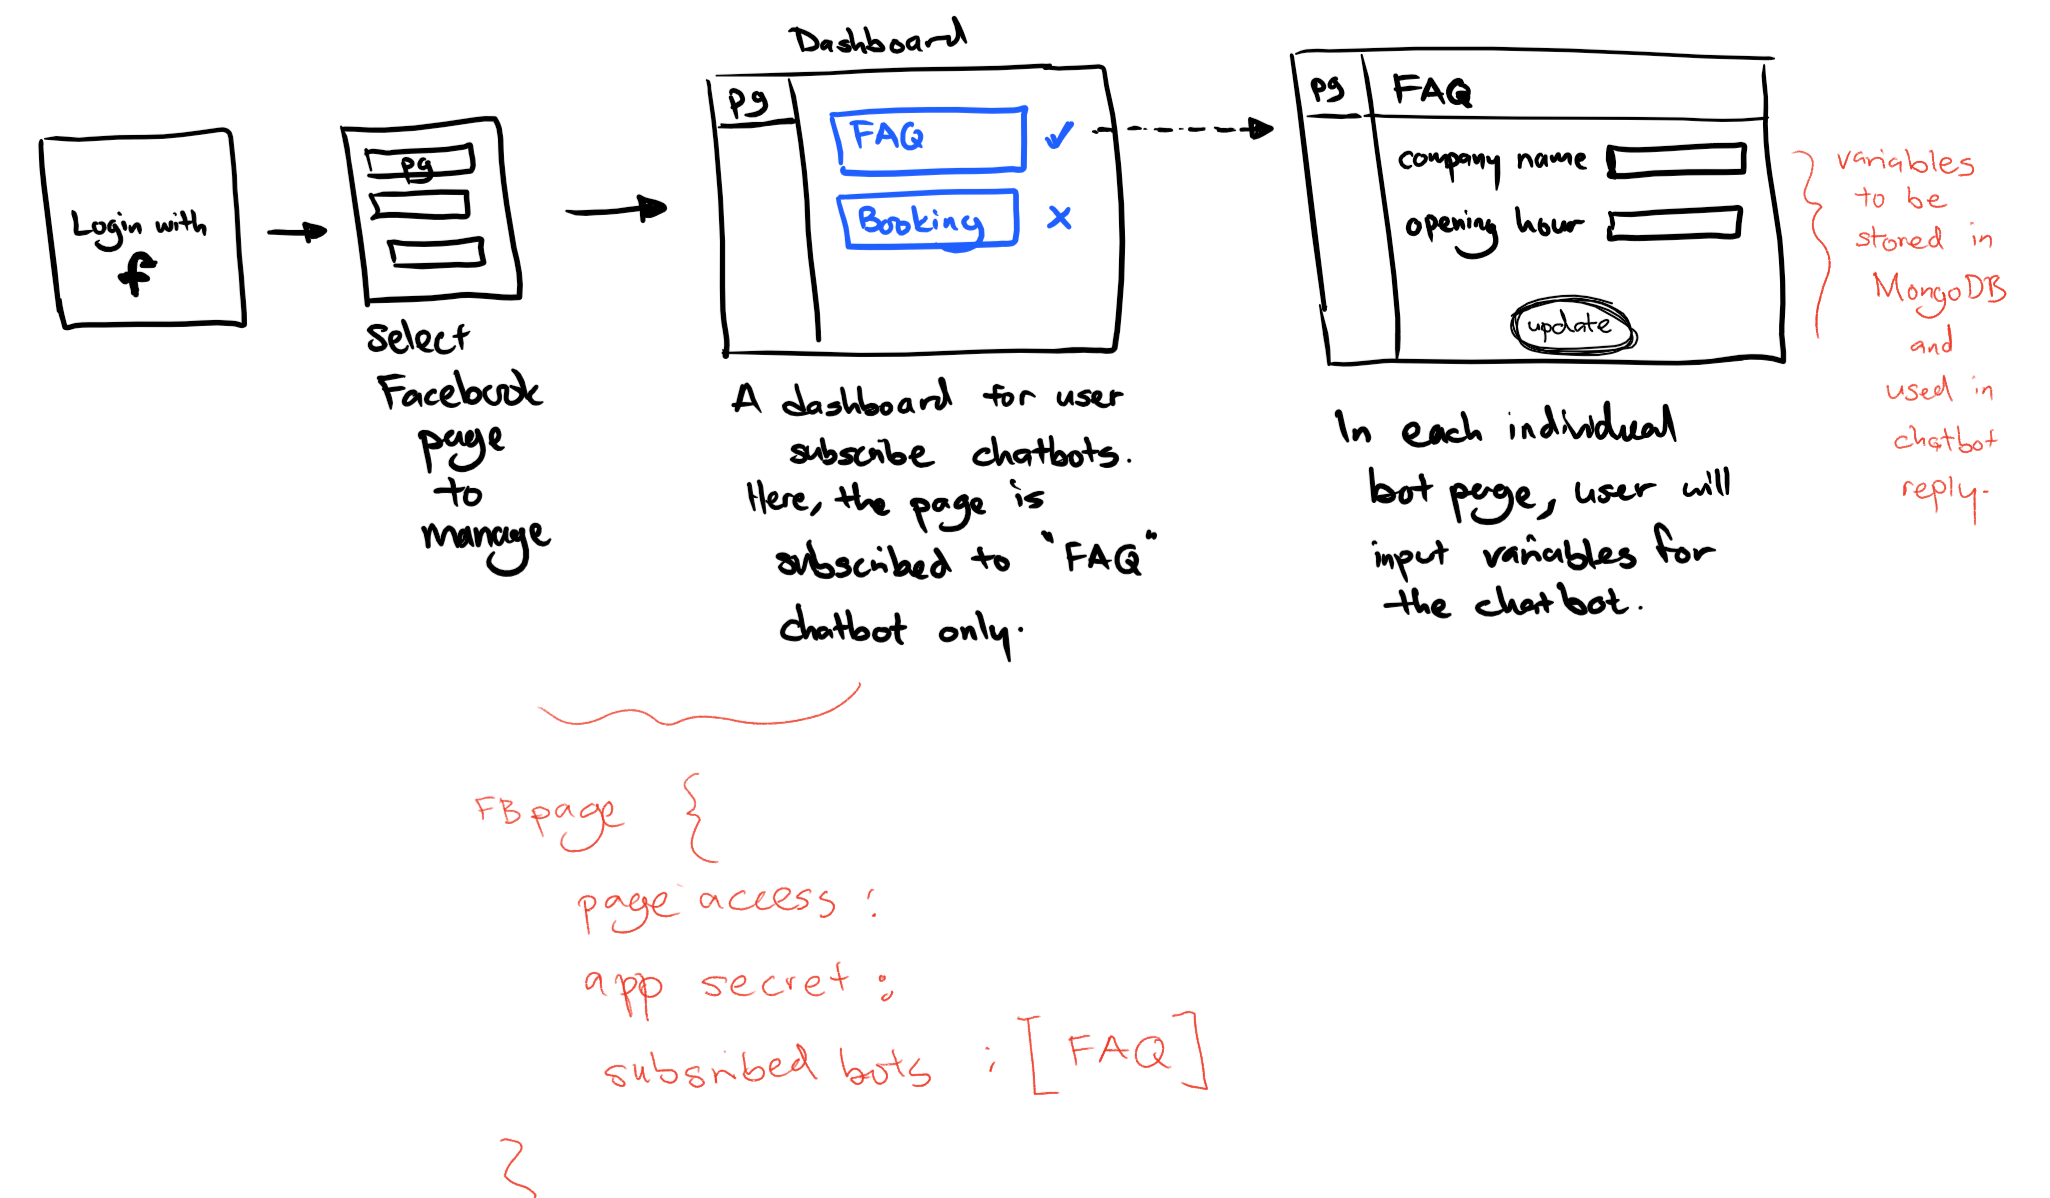 Login with
f
pg
Select
Facebook
page
to
manage
Dashboard
pg
FAQ ✓
Booking x
A dashboard for user
subscribe chatbots.
Here, the page is
subscribed to "FAQ"
chatbot only.
pg
FAQ
company name
opening hour
update
In each individual
bot page, user will
input variables for
the chatbot.
variables
to be
stored in
MongoDB
and
used in
chatbot
reply.
FB page {
page access :
app secret :
subsribed bots : [FAQ]
}